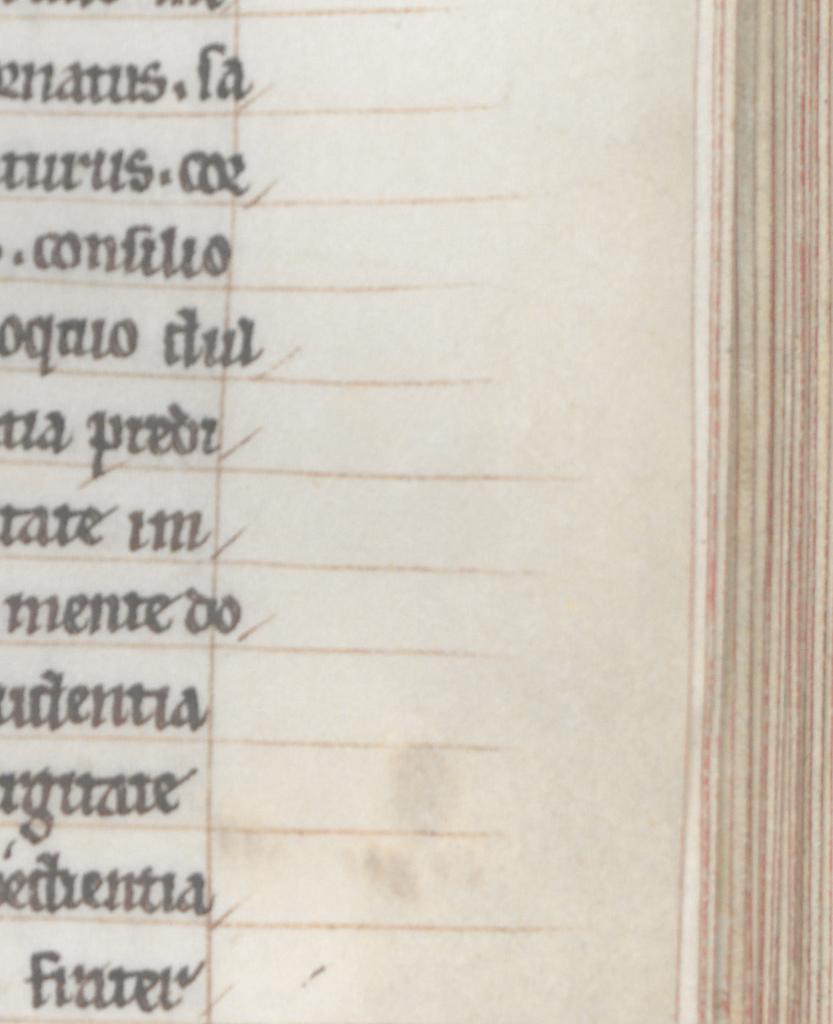 ernatus. sa
turus. cor
. consilio
oquio dul
tia predi
tate im
mente do
udentia
rgitate
bedientia
frater